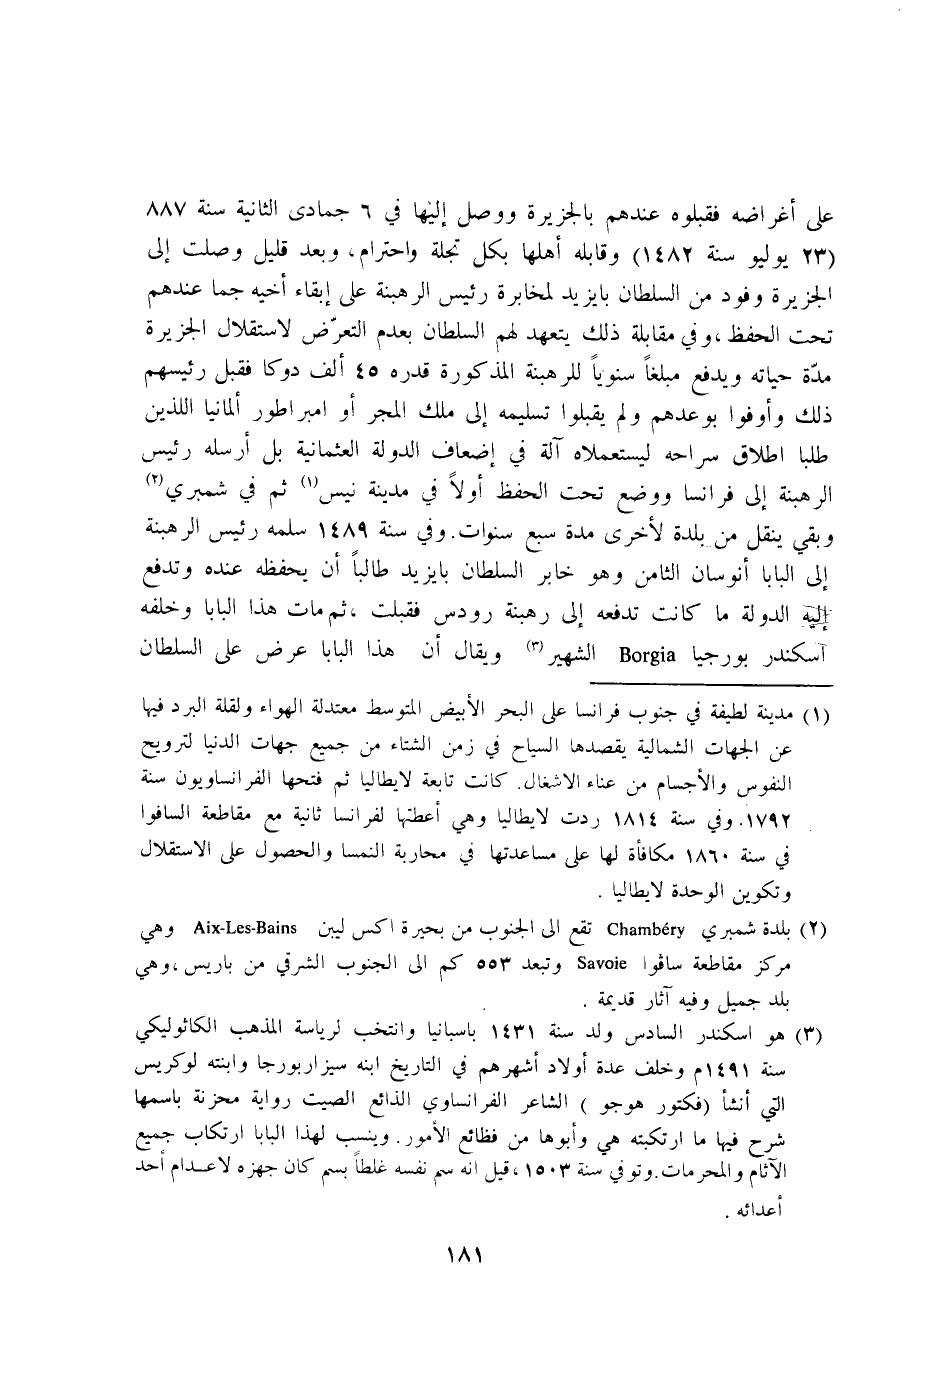 على أغراضه فقبلوه عندهم بالجزيرة ووصل إليها في ٦ جمادى الثانية سنة ٨٨٧
(٢٣ يوليو سنة ١٤٨٢) وقابله أهلها بكل تجلة واحترام، وبعد قليل وصلت إلى
الجزيرة وفود من السلطان بايزيد لمخابرة رئيس الرهبنة على إبقاء أخيه جما عندهم
تحت الحفظ ،وفي مقابلة ذلك يتعهد لهم السلطان بعدم التعرّض لاستقلال الجزيرة
مدّة حياته ويدفع مبلغاً سنوياً للرهبنة المذكورة قدره ٤٥ ألف دوكا فقبل رئيسهم
ذلك وأوفوا بوعدهم ولم يقبلوا تسليمه إلى ملك المجر أو امبراطور ألمانيا اللذين
طلبا اطلاق سراحه ليستعملاه آلة في إضعاف الدولة العثمانية بل أرسله رئيس
الرهبنة إلى فرانسا ووضع تحت الحفظ أولاً في مدينة نيس(١) ثم في شمبري(٢)
وبقي ينقل من بلدة لأخرى مدة سبع سنوات. وفي سنة ١٤٨٩ سلمه رئيس الرهبنة
إلى البابا أنوسان الثامن وهو خابر السلطان بايزيد طالباً أن يحفظه عنده وتدفع
إليه الدولة ما كانت تدفعه إلى رهبنة رودس فقبلت ،ثم مات هذا البابا وخلفه
آسكندر بورجيا Borgia الشهير(٣) ويقال أن هذا البابا عرض على السلطان
(١) مدينة لطيفة في جنوب فرانسا على البحر الأبيض المتوسط معتدلة الهواء ولقلة البرد فيها
عن الجهات الشمالية يقصدها السياح في زمن الشتاء من جميع جهات الدنيا لترويح
النفوس والأجسام من عناء الاشغال. كانت تابعة لايطاليا ثم فتحها الفرانساويون سنة
١٧٩٢. وفي سنة ١٨١٤ ردت لايطاليا وهي أعطتها لفرانسا ثانية مع مقاطعة السافوا
في سنة ١٨٦٠ مكافأة لها على مساعدتها في محاربة النمسا والحصول على الاستقلال
وتكوين الوحدة لايطاليا .
(٢) بلدة شمبري Chambéry تقع الى الجنوب من بحيرة اكس ليبن Aix-Les-Bains وهي
مركز مقاطعة سافوا Savoie وتبعد ٥٥٣ كم الى الجنوب الشرقي من باريس ،وهي
بلد جميل وفيه آثار قديمة .
(٣) هو اسكندر السادس ولد سنة ١٤٣١ باسبانيا وانتخب لرياسة المذهب الكاثوليكي
سنة ١٤٩١م وخلف عدة أولاد أشهرهم في التاريخ ابنه سيزاربورجا وابنته لوكريس
التي أنشأ (فكتور هوجو ) الشاعر الفرانساوي الذائع الصيت رواية محزنة باسمها
شرح فيها ما ارتكبته هي وأبوها من فظائع الأمور. وينسب لهذا البابا ارتكاب جميع
الآثام والمحرمات. وتوفي سنة ١٥٠٣ ،قيل انه سم نفسه غلطاً بسم كان جهزه لاعدام أحد
أعدائه .
١٨١